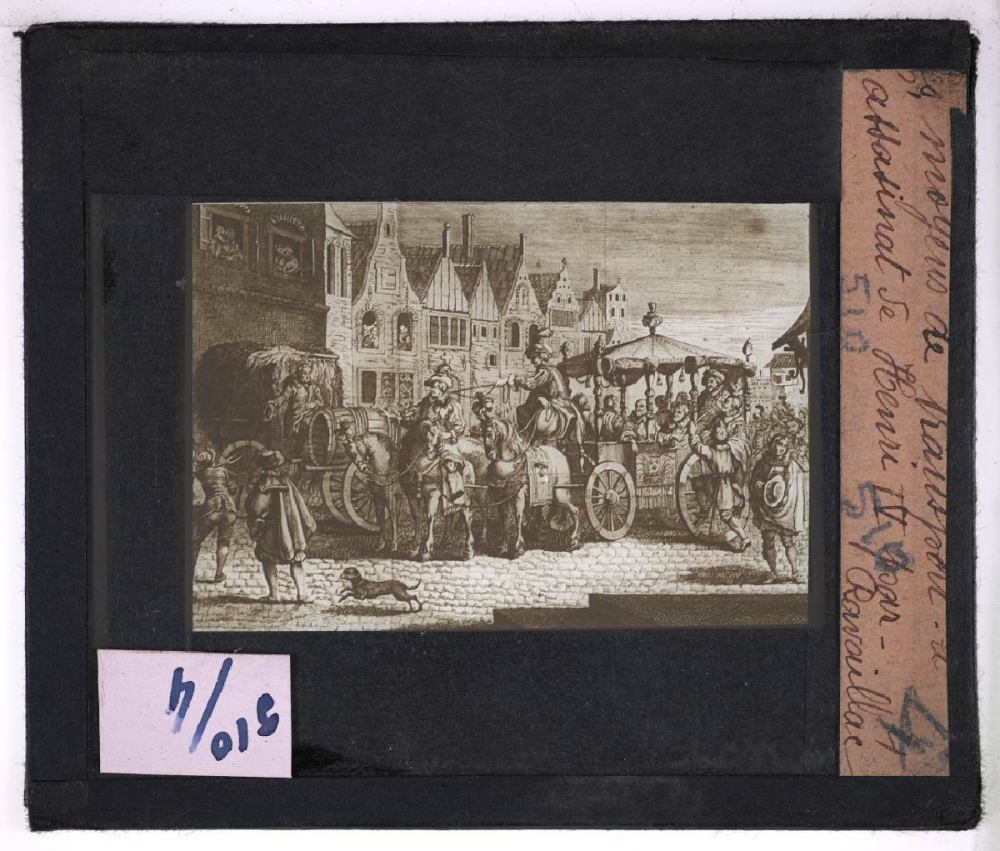 moyens de transport - a
assasinat de Henri IV par -
Ravaillac
4
510
510
510/4